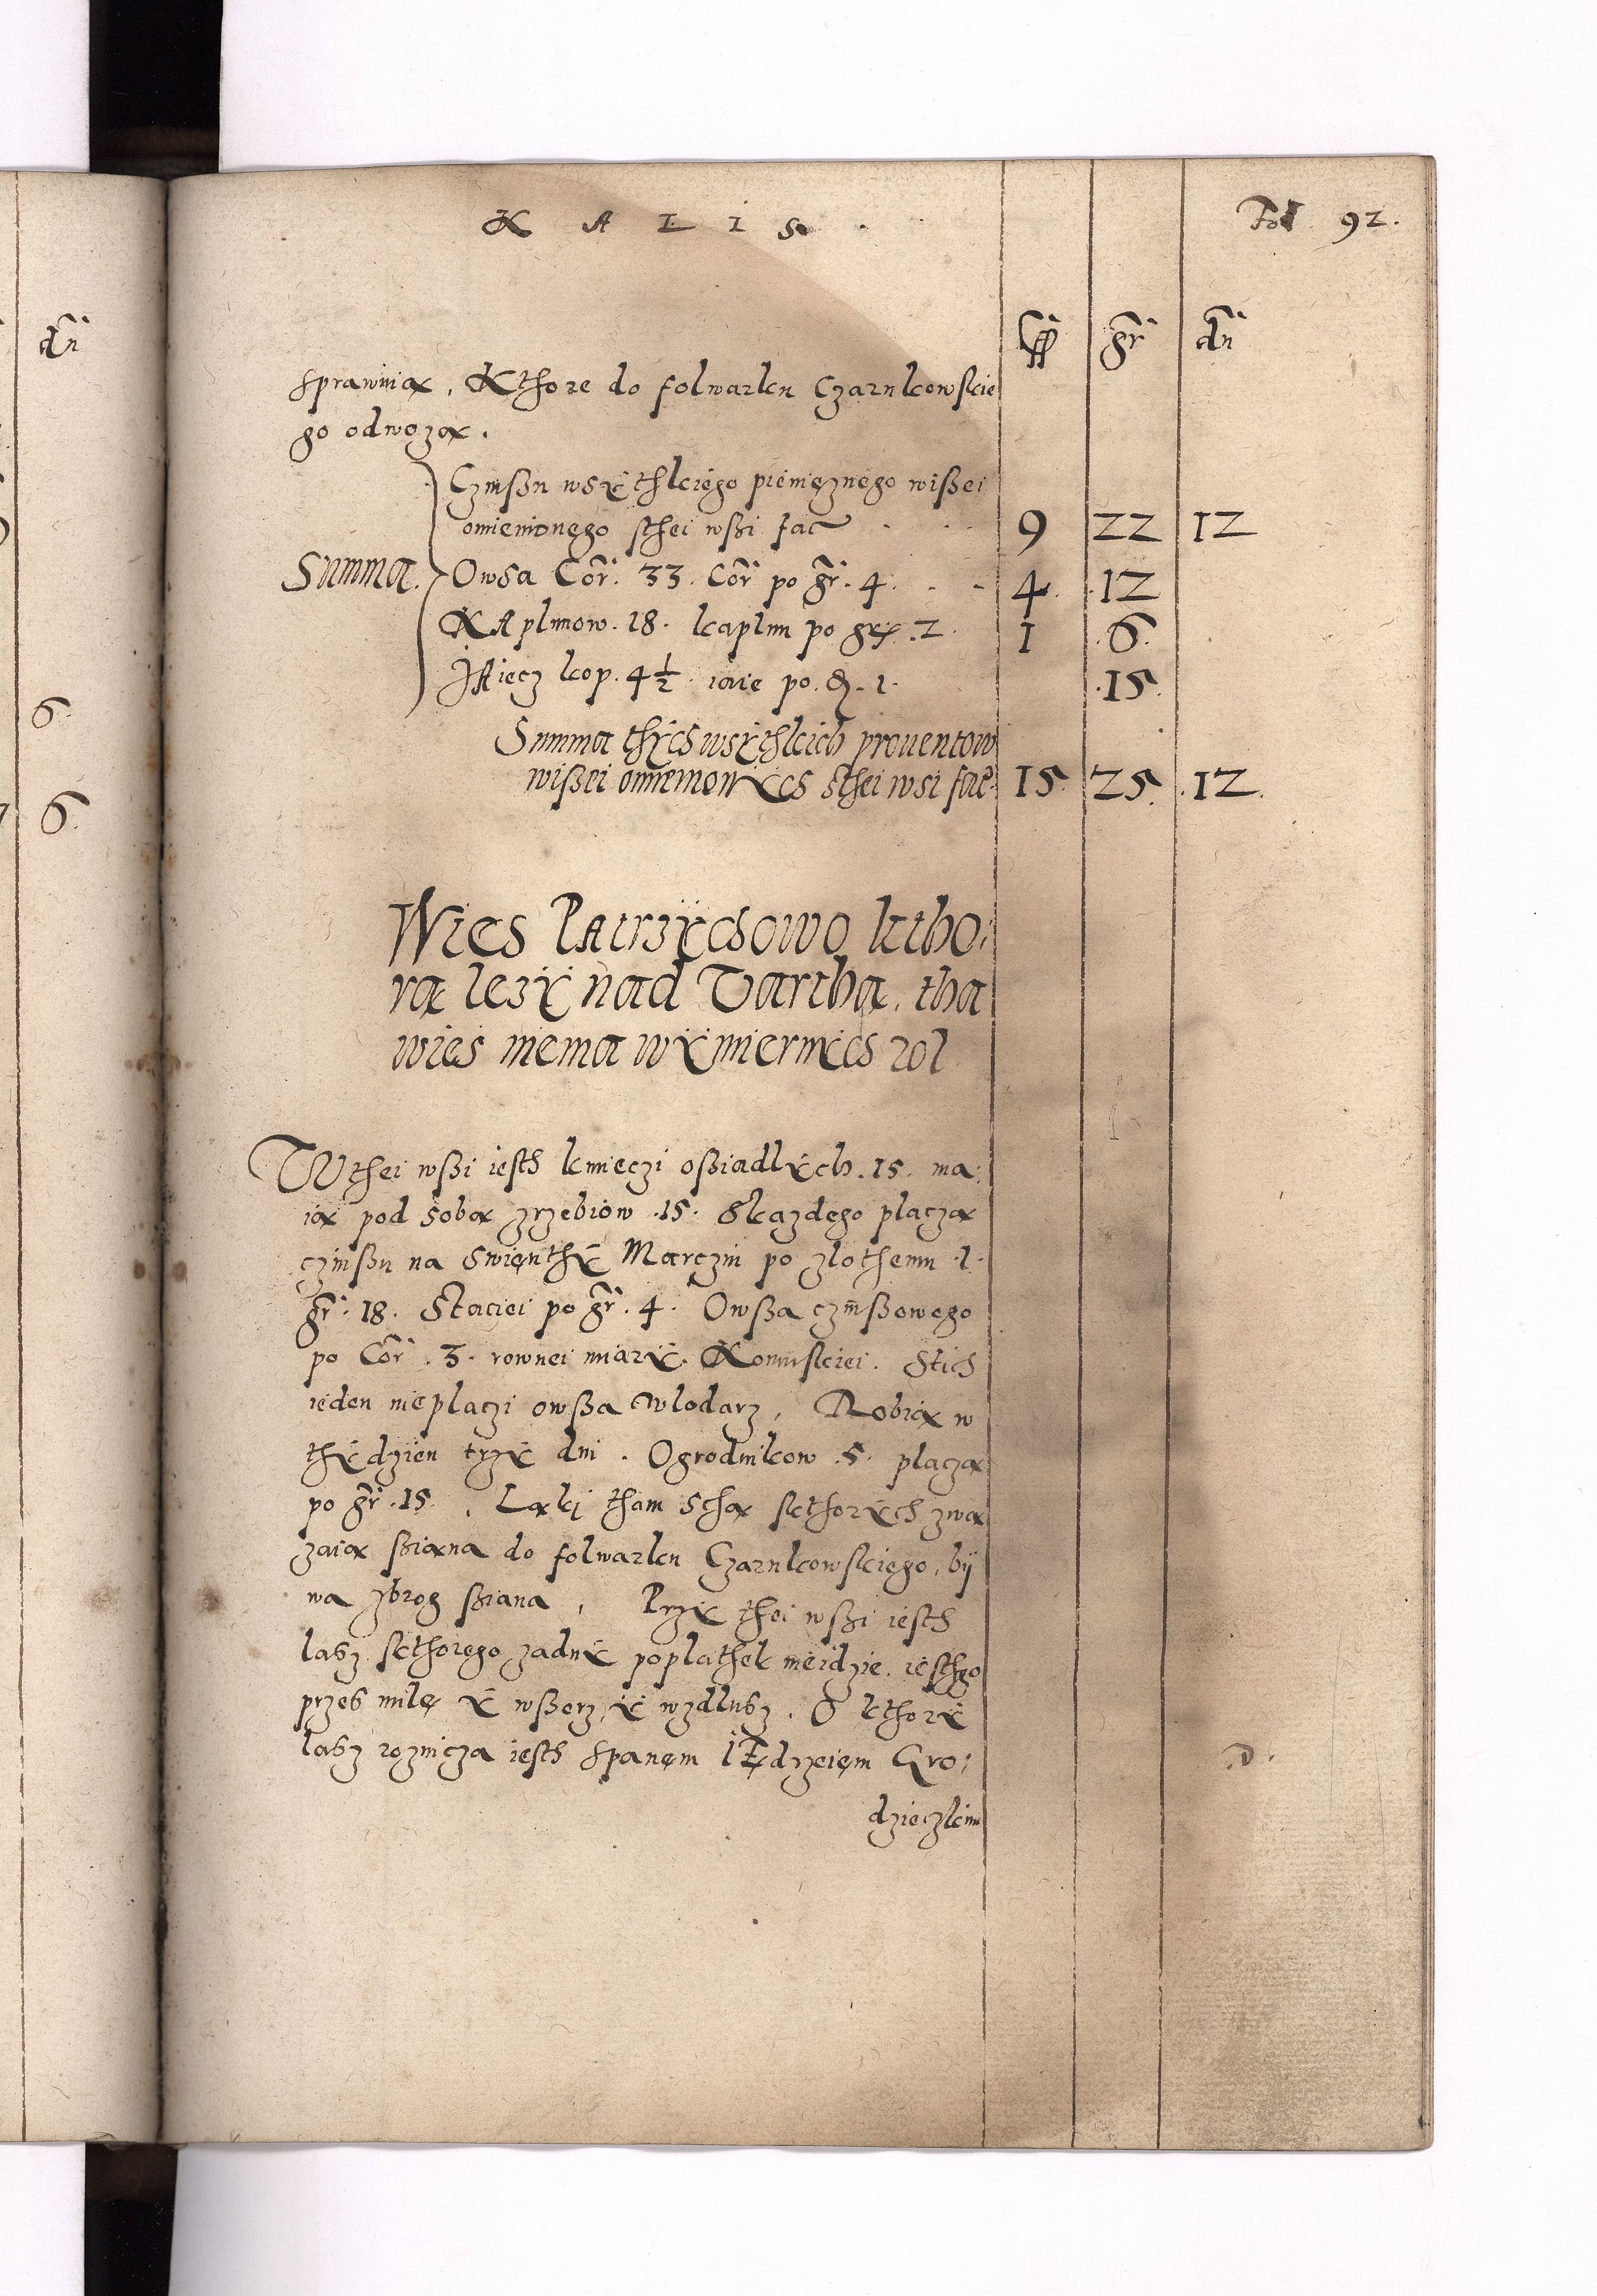 K A L I S.
Fol 92.
fl gr dn
sprawuią, Kthore do folwarku Czarnkowskie
go odwozą.
Czinßu wsÿthkiego pienięznego wißei
omienionego sthei wßi fac 9 22 12
Summa. Owsa Cor. 33. Cor po gr. 4. 4. 12
KAplunow. 18. kaplun po gr. 2. 1 6.
JAiecz kop. 4½ iaie po. d. 1. 15.
Summa thÿch wsÿthkich prouentow
wißei omienionÿch sthei wsi fac. 15 25. 12.
Wies PAtrzÿchowo ktho:
ra lezÿ nad Vartha, tha
wies niema wÿmiernÿch rol
W thei wßi iesth kmieczi oßiadlÿch. 15. ma:
ią pod sobą zrzebiow. 15. Skazdego placzą
czinßu na swięnthÿ Marczin po zlothemu .1.
gr. 18. Staciei po gr. 4. Owßa czinßowego
po Cor. 3. rownei miarÿ. Koninskiei. Stich
ieden nieplaczi owßa Wlodarz, Robią w
thÿdzien trzÿ dni. Ogrodnikow .5. placzą
po gr. 15. Ląki tham sthą skthorÿch zwa
zaią ßiana do folwarku Czarnkowskiego, bÿ
wa zbrog ßiana, Przÿ thei wßi iesth
lasz skthorego zadnÿ poplathek nieidzie. iesthgo
przes milę ÿ wßerz, ÿ wzdlusz. O kthorÿ
lasz roznicza iesth spanęm IĘdrzeięm Gro:
dzieczkim
dn
6.
6.